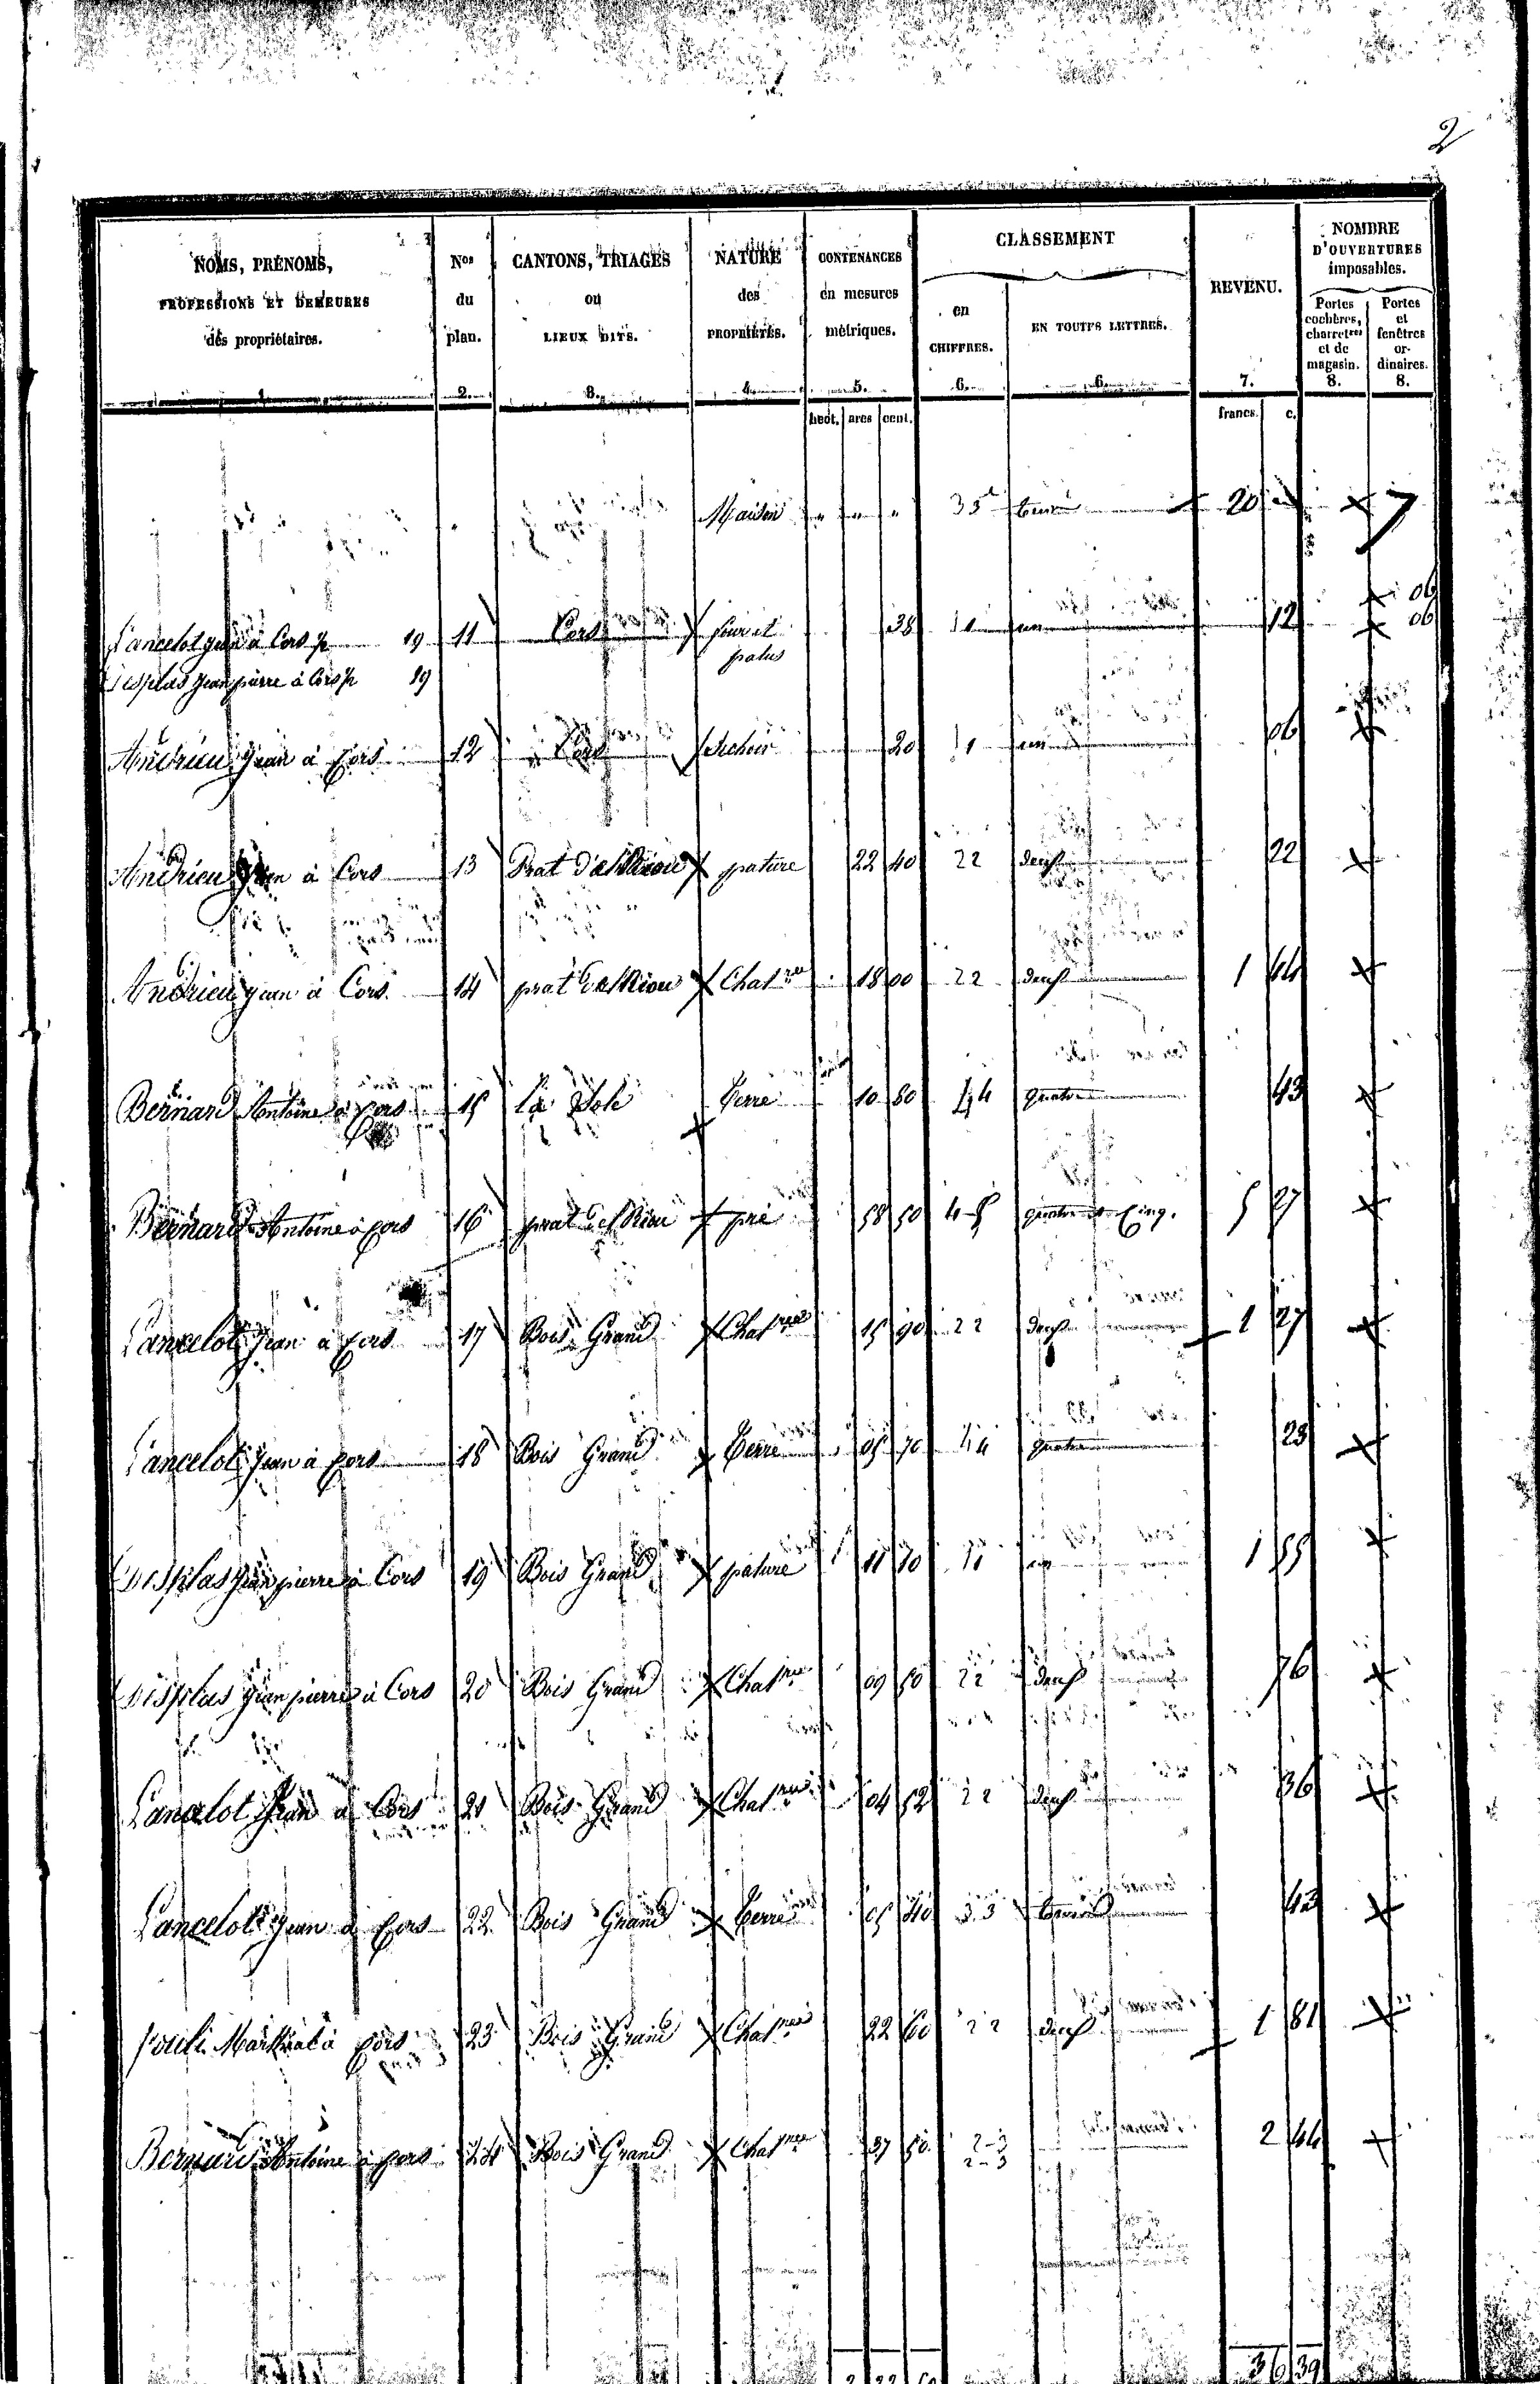 2
NOMS, PRÉNOMS, PROFESSIONS ET DEMEURES des propriétaires. 1.
Nos du plan. 2.
CANTONS, TRIAGES ou LIEUX DITS. 3.
NATURE des PROPRIÉTÉS. 4.
CONTENANCES en mesures métriques. 5.
CLASSEMENT
en CHIFFRES. 6.
EN TOUTES LETTRES. 6.
REVENU. 7.
NOMBRE D'OUVERTURES imposables.
Portes cochères, charretres et de magasin. 8.
Portes et fenêtres ordinaires. 8.
hect. ares cent. francs. c.
Maison " " " 3 20 " 7
Lancelot Jean à Cors p 19 11 Cors four et 38 1 un 12 06
patus 06
Desplas Jean pierre à Cors p 19
Andrieu Jean à Cors 12 Cors Sechoir 20 1 un 06
Andrieu Jean à Cors 13 Prat pature 22 40 2 2 deux 22
Andrieu Jean à Cors 14 prat Chatree 18 00 2 2 deux 1 44
Bernard Antoine à Cors 15 La Sole Terre 10 80 4 quatre 43
Bernard Antoine à Cors 16 prat del Rieu pré 58 50 4-5 quatre et Cinq. 5 27
Lancelot Jean à Cors 17 Bois Grand Chatree 15 90 2 2 deux 1 27
Lancelot Jean à Cors 18 Bois Grand Terre 05 70 4 quatre 23
Desplas Jean pierre à Cors 19 Bois Grand pature 11 70 1 un 1 55
Desplas Jean pierre à Cors 20 Bois Grand Chatree 09 50 2 2 deux 76
Lancelot Jean à Cors 21 Bois Grand Chatree 04 52 2 2 deux 36
Lancelot Jean à Cors 22 Bois Grand Terre 05 40 3 3 trois 43
Martial à Cors 23 Bois Grand Chatree 22 60 2 2 deux 1 81
Bernard Antoine à Cors 24 Bois Grand Chatree 37 50 2-3 2 44
2-3
36 39